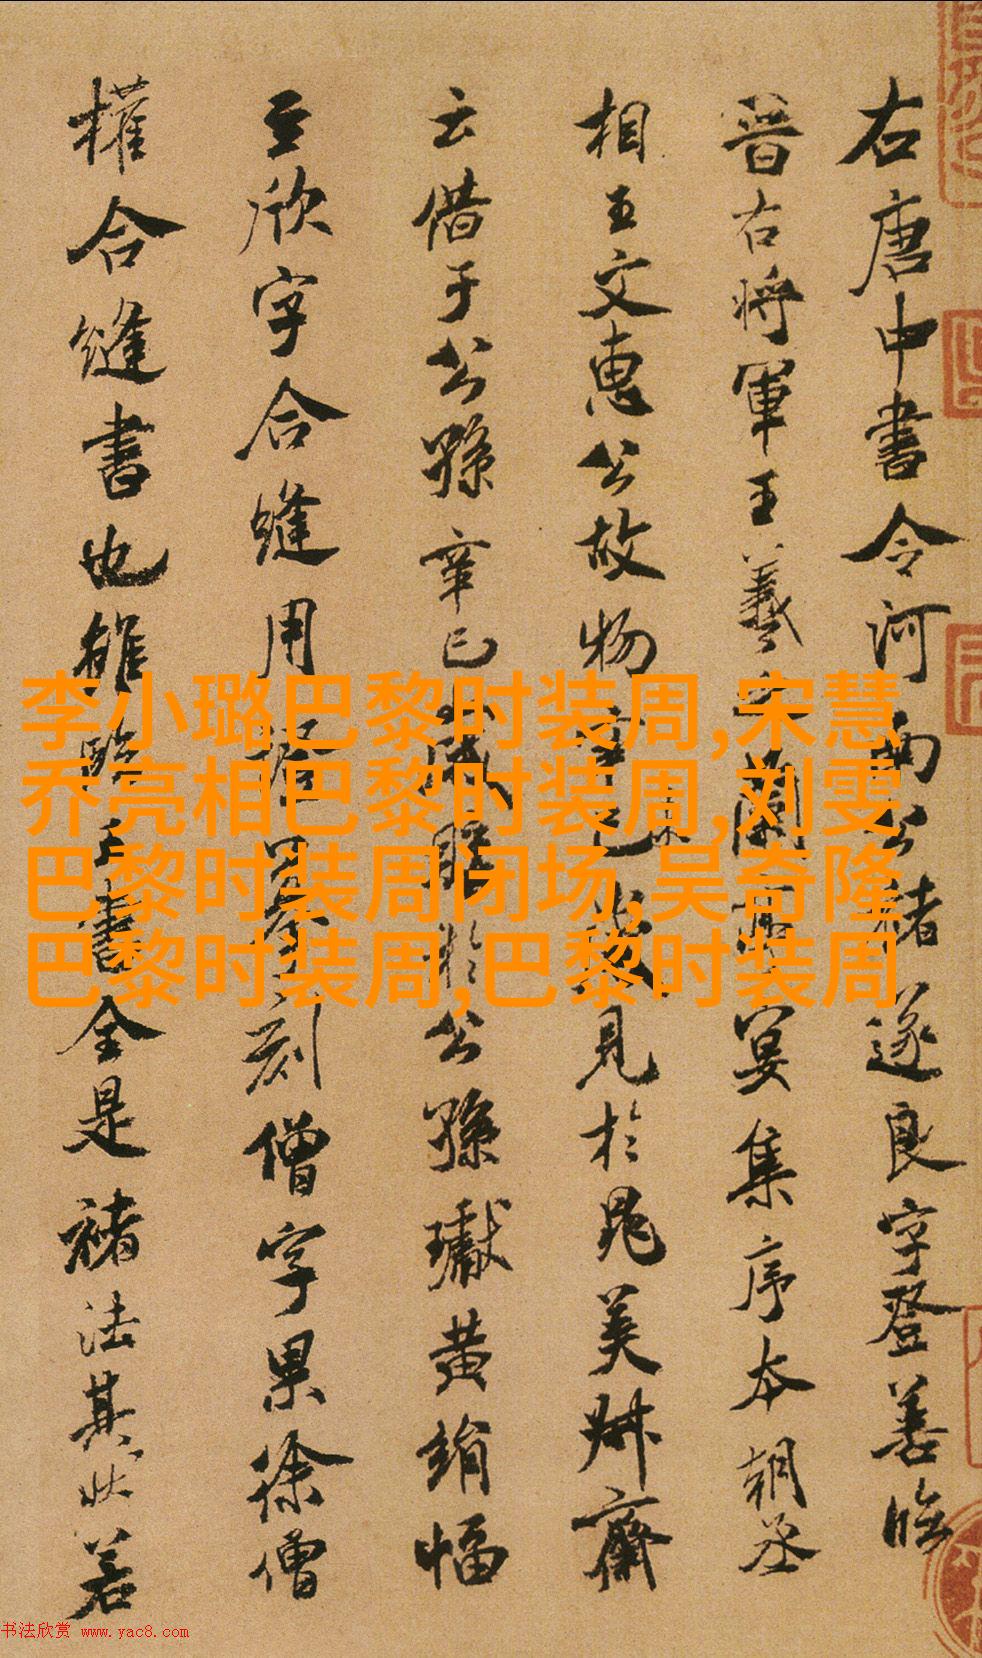 右唐中書令河南公褚遂良字登善臨
晉右將軍王羲之蘭亭宴集序本朝丞
相王文惠公故物辛巳歲見於晁美叔齋
云借于公孫辛巳歲購於公孫瓛黃絹幅
至欣字合縫用證摹刻僧字果徐僧
權合縫書也雖臨王書全是褚法其狀若
李小璐巴黎时装周,宋慧
乔亮相巴黎时装周,刘雯
巴黎时装周闭场,吴奇隆
巴黎时装周,巴黎时装周
书法欣赏 www.yac8.com